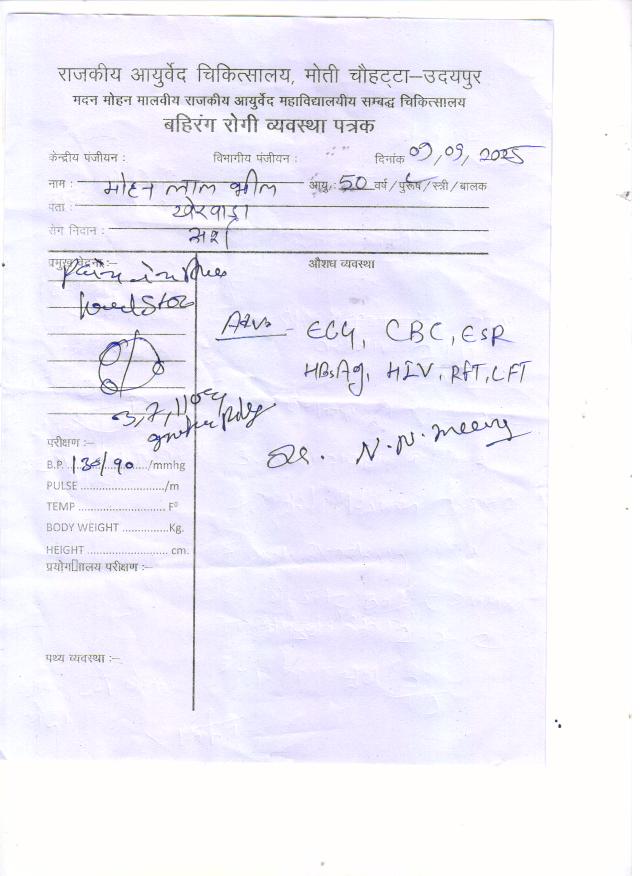 राजकीय आयुर्वेद चिकित्सालय, मोती चौहट्टा–उदयपुर
मदन मोहन मालवीय राजकीय आयुर्वेद महाविद्यालयीय सम्बद्ध चिकित्सालय
बहिरंग रोगी व्यवस्था पत्रक
केन्द्रीय पंजीयन : विभागीय पंजीयन : दिनांक 09,09, 2025
नाम : मोहन लाल भील आयु : 50 वर्ष / पुरूष / स्त्री / बालक
पता : खेरवाड़ा
रोग निदान : अर्श
प्रमुख वेदना :– औशध व्यवस्था
Pain in
Adv - ECG, CBC, ESR
HBsAg, HIV, RFT, LFT
3, 7, 11
Dr. N. N. Meena
परीक्षण :–
B.P. 130/90 /mmhg
PULSE ......................../m
TEMP ......................... F⁰
BODY WEIGHT .............Kg.
HEIGHT ......................... cm.
प्रयोग ालय परीक्षण :–
पथ्य व्यवस्था :–